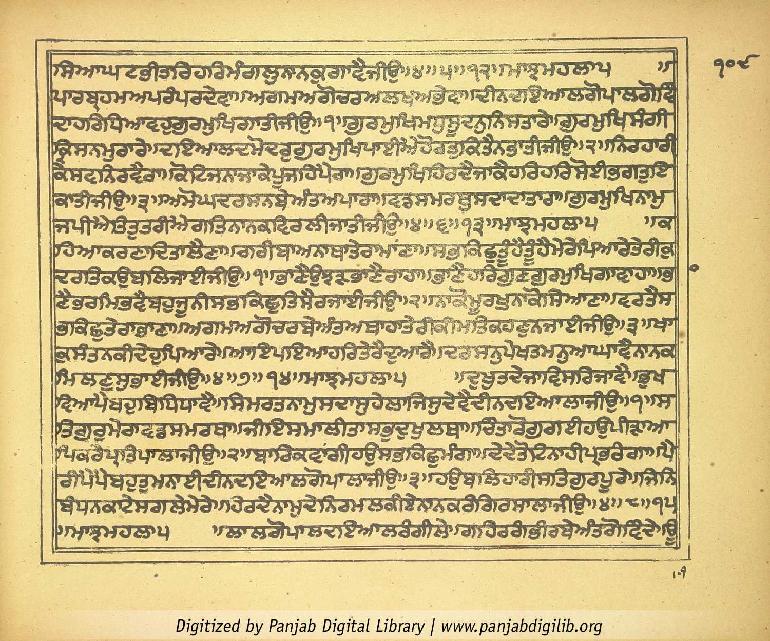 ਸਿਆਘਟਭੀਤਰਿਹਰਿਮੰਗਲੁਨਾਨਕੁਗਾਵੈਜੀਉ॥੪॥੫॥੧੨॥ਮਾਝਮਹਲਾ੫ ॥
੧੦੯
ਪਾਰਬ੍ਰਹਮਅਪਰੰਪਰਦੇਵਾ॥ਅਗਮਅਗੋਚਰਅਲਖਅਭੇਵਾ॥ਦੀਨਦਇਆਲਗੋਪਾਲਗੋਵਿੰ
ਦਾਹਰਿਧਿਆਵਹੁਗੁਰਮੁਖਿਗਾਤੀਜੀਉ॥੧॥ਗੁਰਮੁਖਿਮਧੁਸੂਦਨੁਨਿਸਤਾਰੇ॥ਗੁਰਮੁਖਿਸੰਗੀ
ਕ੍ਰਿਸਨਮੁਰਾਰੇ॥ਦਇਆਲਦਮੋਦਰੁਗੁਰਮੁਖਿਪਾਈਐਹੋਰਤੁਕਿਤੈਨਭਾਤੀਜੀਉ॥੨॥ਨਿਰਹਾਰੀ
ਕੇਸਵਨਿਰਵੈਰਾ॥ਕੋਟਿਜਨਾਜਾਕੇਪੂਜਹਿਪੈਰਾ॥ਗੁਰਮੁਖਿਹਿਰਦੈਜਾਕੈਹਰਿਹਰਿਸੋਈਭਗਤੁਇ
ਕਾਤੀਜੀਉ॥੩॥ਅਮੋਘਦਰਸਨਬੇਅੰਤਅਪਾਰਾ॥ਵਡਸਮਰਥੁਸਦਾਦਾਤਾਰਾ॥ਗੁਰਮੁਖਿਨਾਮੁ
ਜਪੀਐਤਿਤੁਤਰੀਐਗਤਿਨਾਨਕਵਿਰਲੀਜਾਤੀਜੀਉ॥੪॥੬॥੧੩॥ਮਾਝਮਹਲਾ੫ ॥ਕ
ਹਿਆਕਰਣਾਦਿਤਾਲੈਣਾ॥ਗਰੀਬਾਅਨਾਥਾਤੇਰਾਮਾਣਾ॥ਸਭਕਿਛੁਤੂੰਹੈਤੂੰਹੈਮੇਰੇਪਿਆਰੇਤੇਰੀਕੁ
ਦਰਤਿਕਉਬਲਿਜਾਈਜੀਉ॥੧॥ਭਾਣੈਉਝੜਭਾਣੈਰਾਹਾ॥ਭਾਣੈਹਰਿਗੁਣਗੁਰਮੁਖਿਗਾਵਾਹਾ॥ਭਾ
ਣੈਭਰਮਿਭਵੈਬਹੁਜੂਨੀਸਭਕਿਛੁਤਿਸੈਰਜਾਈਜੀਉ॥੨॥ਨਾਕੋਮੂਰਖੁਨਾਕੋਸਿਆਣਾ॥ਵਰਤੈਸ
ਭਕਿਛੁਤੇਰਾਭਾਣਾ॥ਅਗਮਅਗੋਚਰਬੇਅੰਤਅਥਾਹਾਤੇਰੀਕੀਮਤਿਕਹਣੁਨਜਾਈਜੀਉ॥੩॥ਖਾ
ਕੁਸੰਤਨਕੀਦੇਹੁਪਿਆਰੇ॥ਆਇਪਇਆਹਰਿਤੇਰੈਦੁਆਰੈ॥ਦਰਸਨੁਪੇਖਤਮਨੁਆਘਾਵੈਨਾਨਕ
ਮਿਲਣੁਸੁਭਾਈਜੀਉ॥੪॥੭॥੧੪॥ਮਾਝਮਹਲਾ੫ ॥ਦੁਖੁਤਦੇਜਾਵਿਸਰਿਜਾਵੈ॥ਭੁਖ
ਵਿਆਪੈਬਹੁਬਿਧਿਧਾਵੈ॥ਸਿਮਰਤਨਾਮੁਸਦਾਸੁਹੇਲਾਜਿਸੁਦੇਵੈਦੀਨਦਇਆਲਾਜੀਉ॥੧॥ਸ
ਤਿਗੁਰੁਮੇਰਾਵਡਸਮਰਥਾ॥ਜੀਇਸਮਾਲੀਤਾਸਭੁਦੁਖੁਲਥਾ॥ਚਿੰਤਾਰੋਗੁਗਈਹਉਪੀੜਾਆ
ਪਿਕਰੇਪ੍ਰਤਿਪਾਲਾਜੀਉ॥੨॥ਬਾਰਿਕਵਾਂਗੀਹਉਸਭਕਿਛੁਮੰਗਾ॥ਦੇਦੇਤੋਟਿਨਾਹੀਪ੍ਰਭਰੰਗਾ॥ਪੈ
ਰੀਪੈਪੈਬਹੁਤੁਮਨਾਈਦੀਨਦਇਆਲਗੋਪਾਲਾਜੀਉ॥੩॥ਹਉਬਲਿਹਾਰੀਸਤਿਗੁਰਪੂਰੇ॥ਜਿਨਿ
ਬੰਧਨਕਾਟੇਸਗਲੇਮੇਰੇ॥ਹਿਰਦੈਨਾਮੁਦੇਨਿਰਮਲਕੀਏਨਾਨਕਰੰਗਿਰਸਾਲਾਜੀਉ॥੪॥੮॥੧੫
॥ਮਾਝਮਹਲਾ੫ ॥ਲਾਲਗੋਪਾਲਦਇਆਲਰੰਗੀਲੇ॥ਗਹਿਰਗੰਭੀਰਬੇਅੰਤਗੋਵਿੰਦੇ॥ਊ
Digitized by Panjab Digital Library | www.panjabdigilib.org